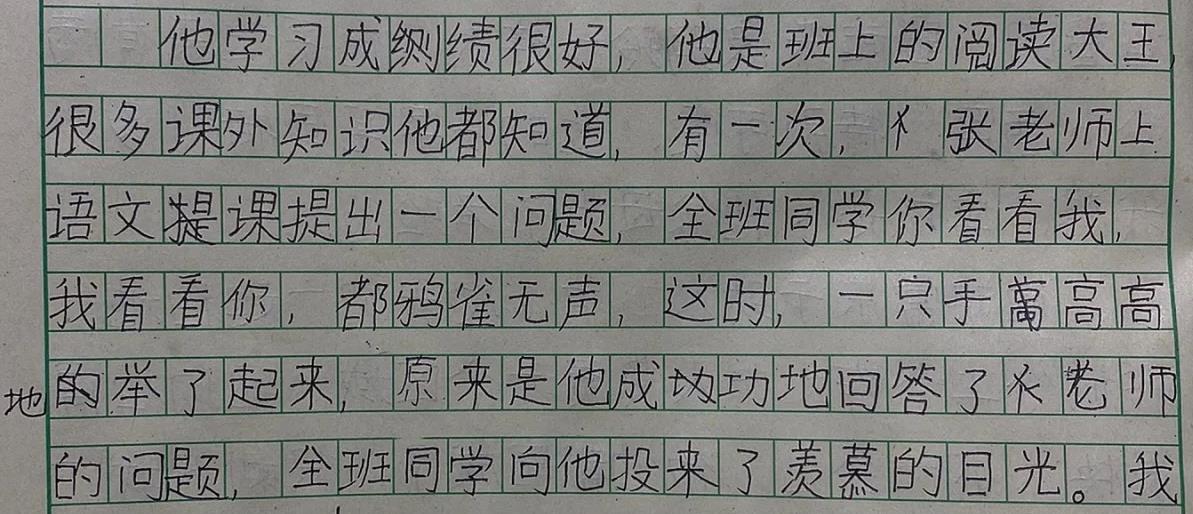 他学习成绩很好，他是班上的阅读大王，
很多课外知识他都知道，有一次，张老师上
语文课提出一个问题，全班同学你看看我，
我看看你，都鸦雀无声，这时，一只手高高
地的举了起来，原来是他成功地回答了老师
的问题，全班同学向他投来了羡慕的目光。我